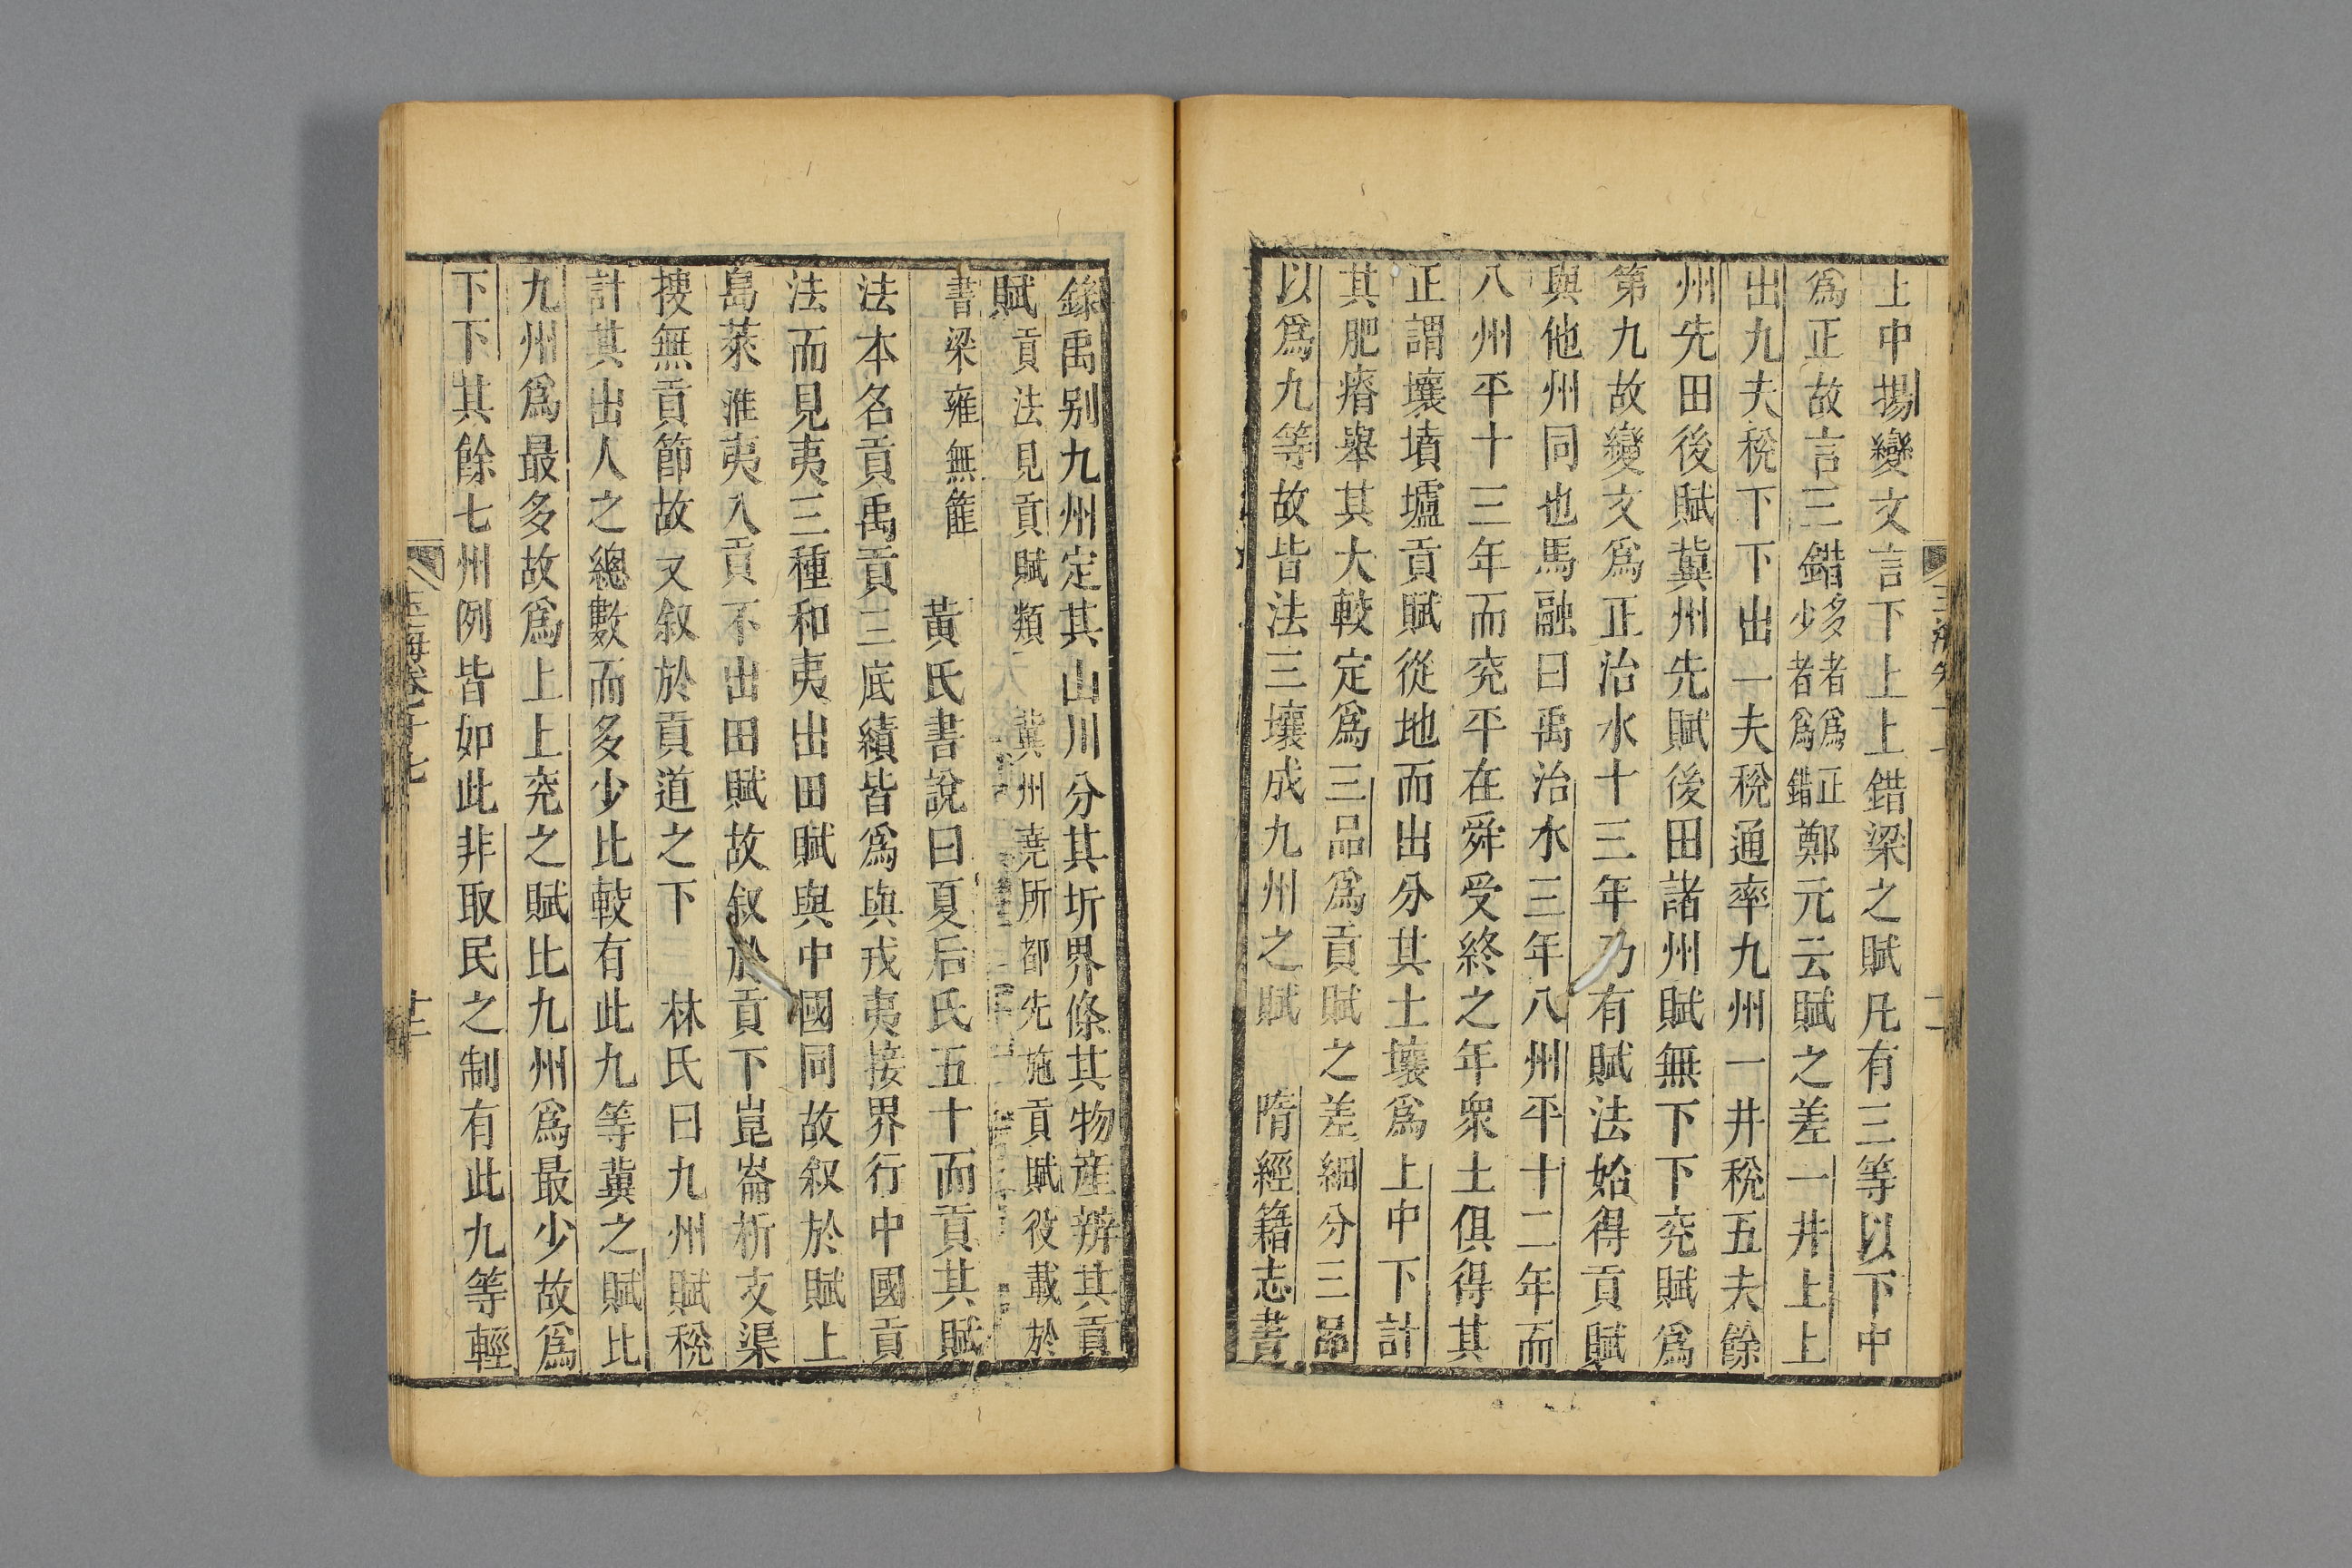 上中揚變文言下上上錯梁之賦凡有三等以下中
爲正故言三錯多者爲正少者爲錯鄭元云賦之差一井上上
出九夫稅下下出一夫稅通率九州一井稅五夫餘
州先田後賦冀州先賦後田諸州賦無下下兖賦爲
第九故變文爲正治水十三年乃有賦法始得貢賦
與他州同也馬融曰禹治水三年八州平十二年而
八州平十三年而兖平在舜受終之年衆土俱得其
正謂壤墳壚貢賦從地而出分其土壤爲上中下計
其肥瘠舉其大較定爲三品爲貢賦之差細分三品
以爲九等故皆法三壤成九州之賦 隋經籍志書
錄禹别九州定其山川分其圻界條其物産辨其貢
賦貢法見貢賦類 冀州堯所都先施貢賦役載於
書梁雍無篚 黃氏書說曰夏后氏五十而貢其賦
法本名貢禹貢三底績皆爲與戎夷接界行中國貢
法而見夷三種和夷出田賦與中國同故叙於賦上
島萊淮夷入貢不出田賦故叙於貢下崑崙析支渠
搜無貢節故又叙於貢道之下 林氏曰九州賦稅
計其出人之總數而多少比較有此九等冀之賦比
九州爲最多故爲上上兖之賦比九州爲最少故爲
下下其餘七州例皆如此非取民之制有此九等輕
玉海卷十七